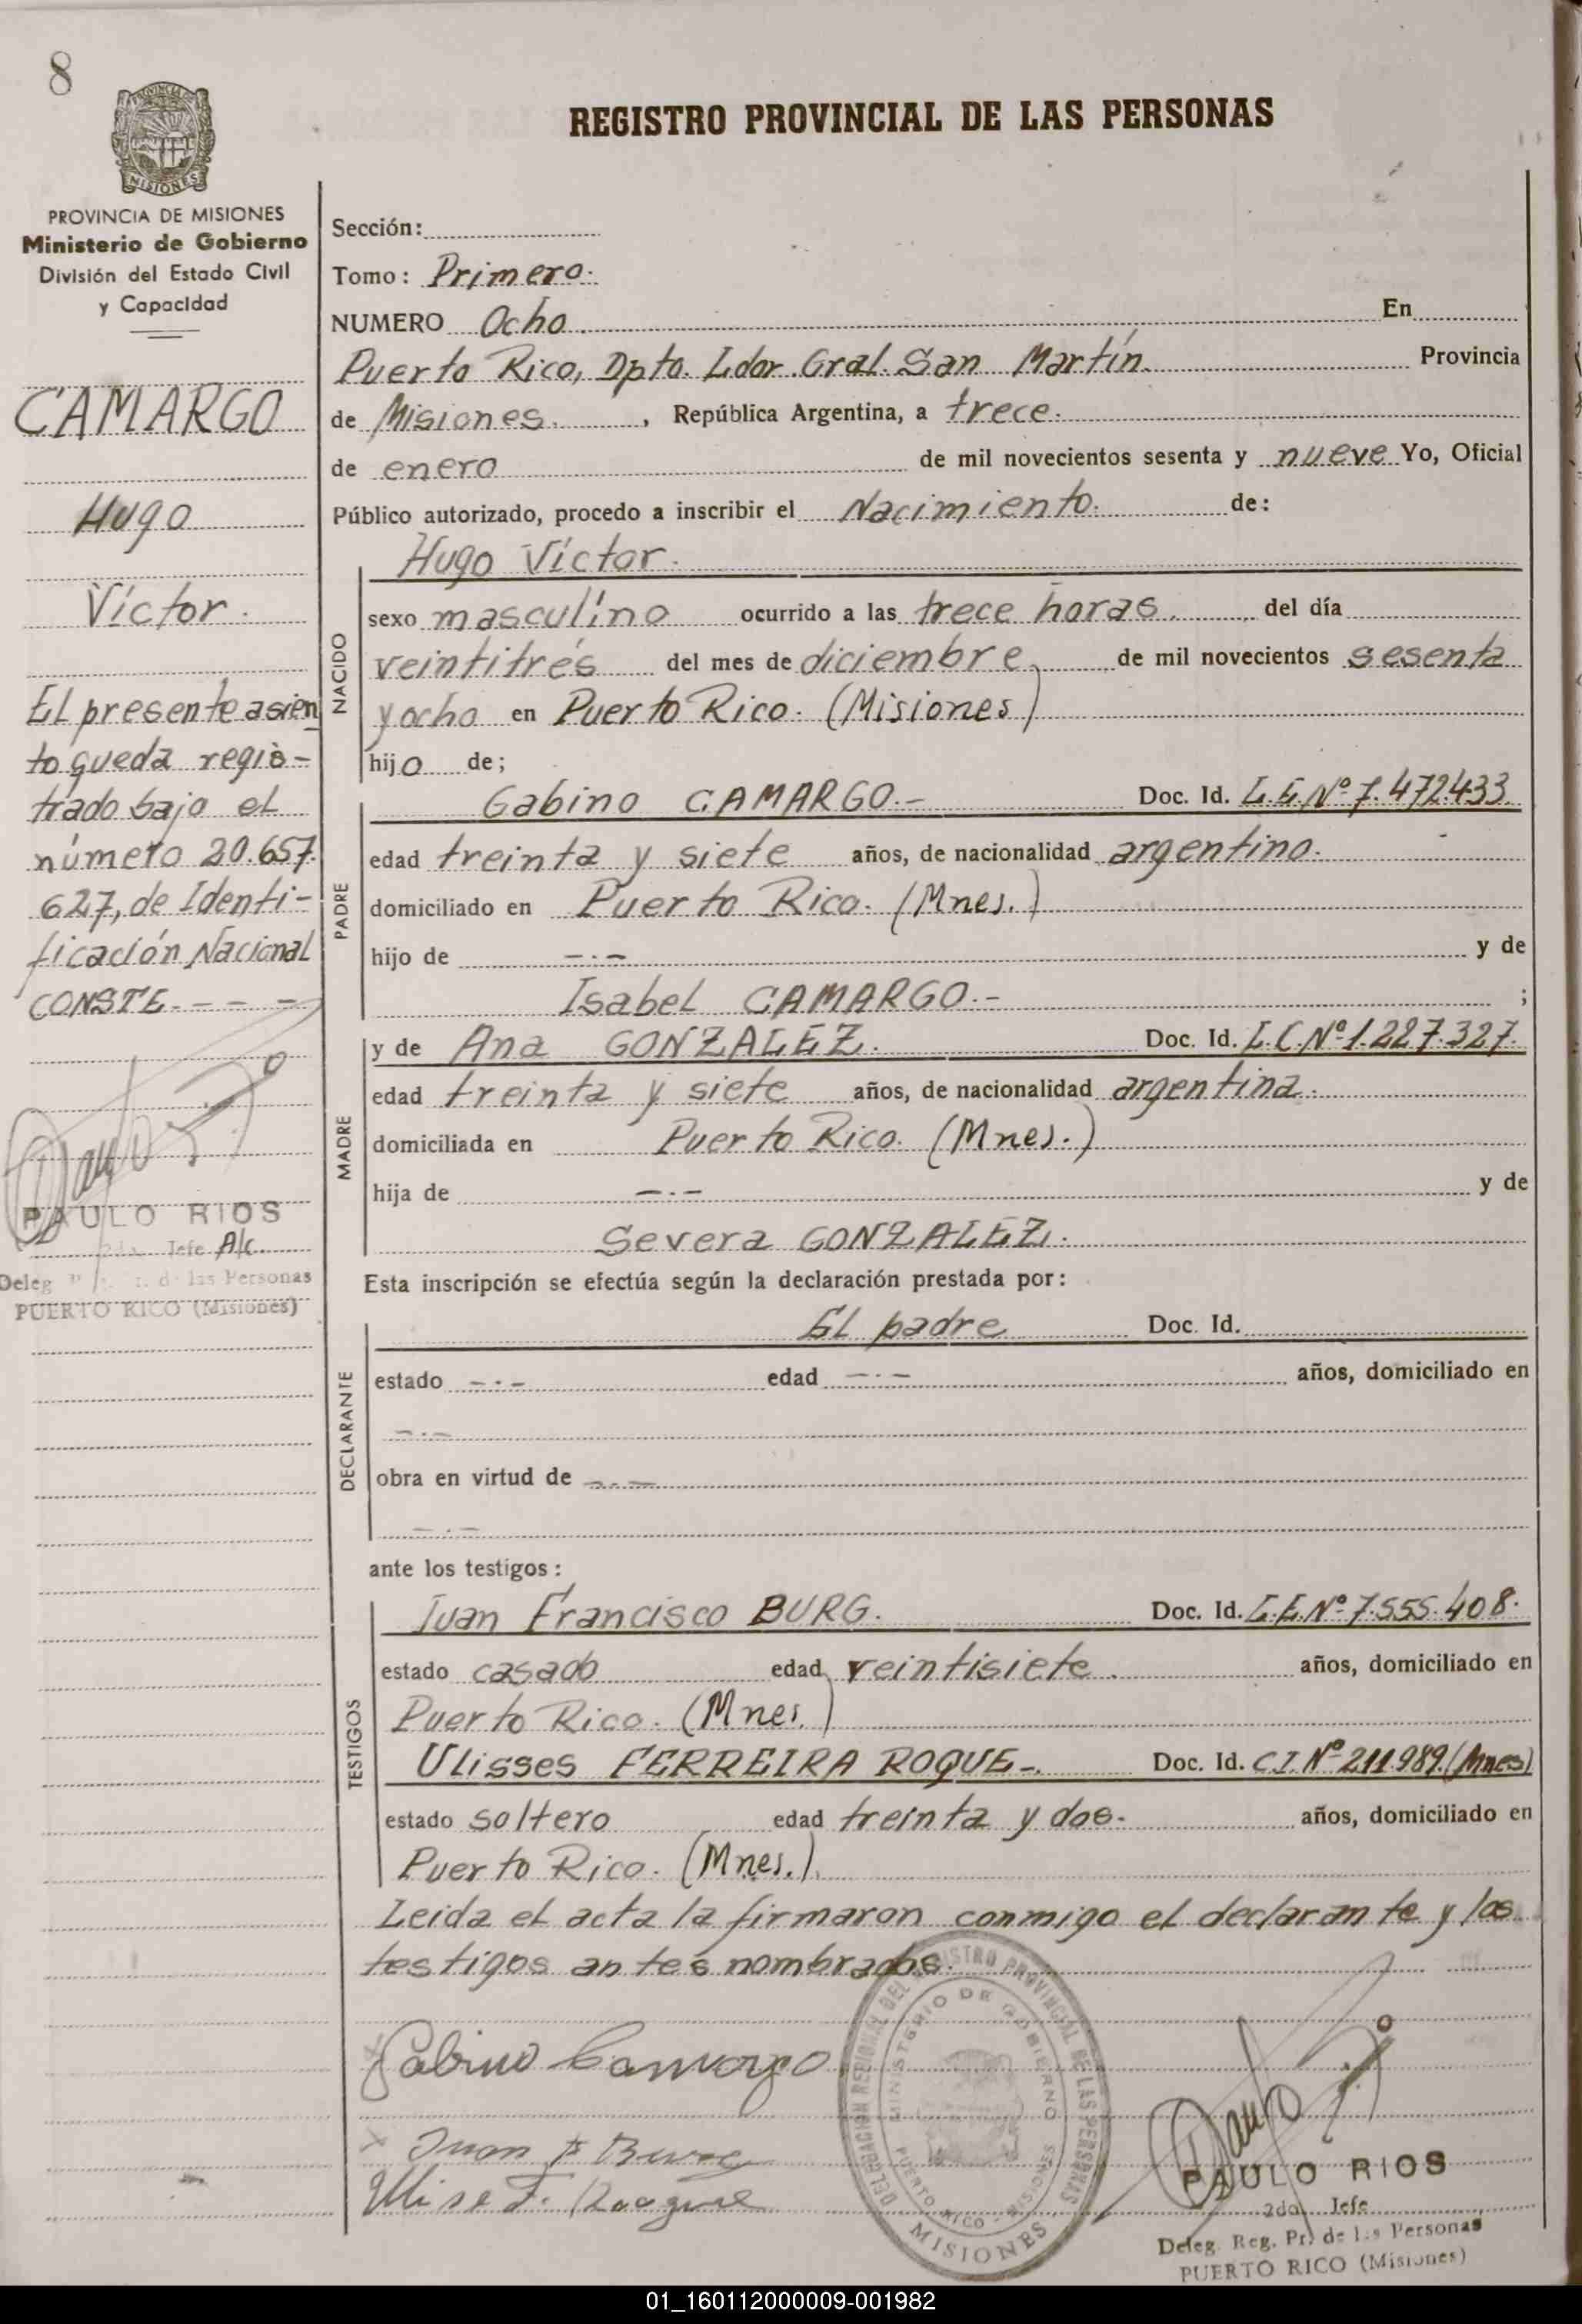 8
REGISTRO PROVINCIAL DE LAS PERSONAS
PROVINCIA DE MISIONES
MISIONES
PROVINCIA DE MISIONES
Ministerio de Gobierno
División del Estado Civil
y Capacidad
CAMARGO
Hugo
Víctor.
El presente asien
to queda regis-
trado bajo el
número 20.657.
627, de Identi-
ficación Nacional
CONSTE.- - - -
PAULO RIOS
2do. Jefe A/c.
Deleg. de las Personas
PUERTO RICO (Misiones)
Sección:
Tomo: Primero.
NUMERO Ocho. En
Puerto Rico, Dpto. Ldor. Gral. San Martín. Provincia
de Misiones. , República Argentina, a trece.
de enero de mil novecientos sesenta y nueve Yo, Oficial
Público autorizado, procedo a inscribir el Nacimiento. de:
Hugo Víctor.
NACIDO
sexo masculino ocurrido a las trece horas. del día
veintitrés del mes de diciembre, de mil novecientos sesenta
y ocho en Puerto Rico. (Misiones)
hijo de;
PADRE
Gabino CAMARGO.- Doc. Id. L.E.Nº 7.472.433.
edad treinta y siete años, de nacionalidad argentino.
domiciliado en Puerto Rico. (Mnes.)
hijo de -.- y de
Isabel CAMARGO.- ;
MADRE
y de Ana GONZALEZ. Doc. Id. L.C.Nº 1.227.327.
edad treinta y siete años, de nacionalidad argentina.
domiciliada en Puerto Rico. (Mnes.)
hija de -.- y de
Severa GONZALEZ.
Esta inscripción se efectúa según la declaración prestada por:
DECLARANTE
El padre Doc. Id.
estado -.- edad -.- años, domiciliado en
-.-
obra en virtud de -.-
-.-
ante los testigos:
TESTIGOS
Juan Francisco BURG. Doc. Id. L.E.Nº 7.555.408.
estado casado edad veintisiete. años, domiciliado en
Puerto Rico. (Mnes.)
Ulisses FERREIRA ROQUE-. Doc. Id. C.I.Nº 211.989.(Mnes)
estado soltero edad treinta y dos. años, domiciliado en
Puerto Rico. (Mnes.).
Leida el acta la firmaron conmigo el declarante y los
testigos antes nombrados.
Gabino Camargo
Juan F Burg
DELEGACION REGIONAL DEL REGISTRO PROVINCIAL DE LAS PERSONAS
MINISTERIO DE GOBIERNO
PUERTO RICO - MISIONES
MISIONES
PAULO RIOS
2do. Jefe
Deleg. Reg. Pr. de las Personas
PUERTO RICO (Misiones)
01_160112000009-001982